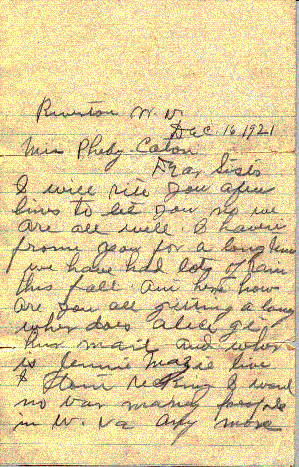 Riverton W. V.
Dec. 16 1921
Mrs Phedy Caton
Dear Sister
I will rite you a few
lines to let you no we
are all well. I havin
from you for a long time
we have had lots of rain
this fall hear how
are you all gitting a long
wher does alice git
her mail and wher
is Jennie live
I
no van many people
in W. Va any more